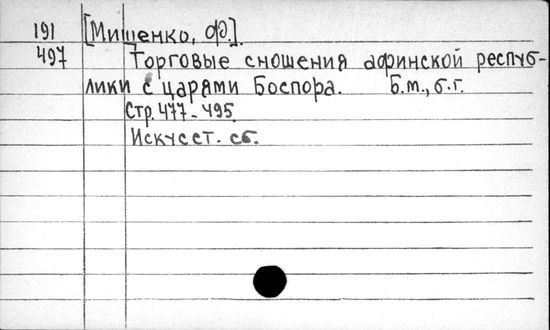 191 [Мищенко, Ф.].
497 Торговые сношения афинской респуб-
лики с царями Боспора. Б.м., б.г.
Стр. 477-495
Искусст. сб.